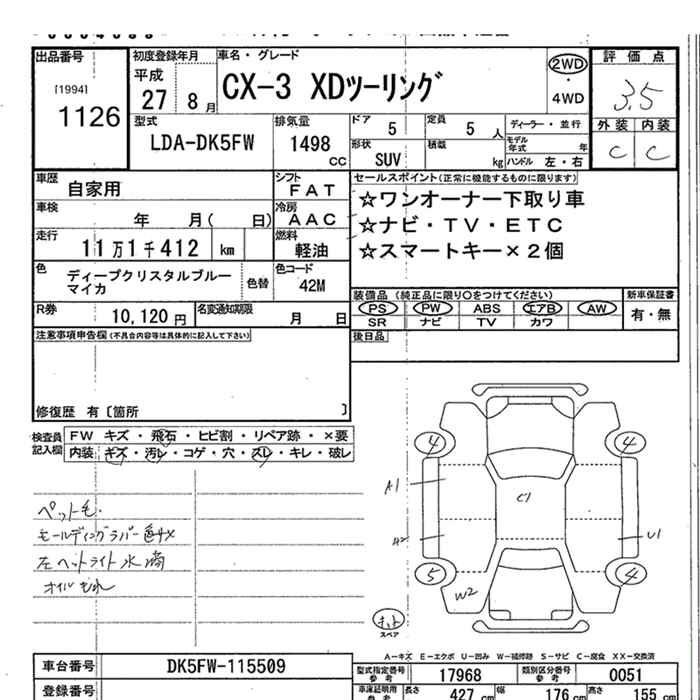 出品番号
[1994]
1126
初度登録年月
平成
27 年 8 月
車名・グレード
CX-3 XDツーリング
2WD
・
4WD
評価点
3.5
外装 内装
C C
型式
LDA-DK5FW
排気量
1498 cc
ドア 5
定員 5 人
形状 SUV
積載 kg
ディーラー・並行
モデル年式 年
ハンドル 左・右
車歴 自家用
シフト FAT
車検 年 月( 日)
冷房 AAC
走行 11万1千412 km
燃料 軽油
色 ディープクリスタルブルー
マイカ
色替
色コード 42M
R券 10,120 円
名変通知期限 月 日
セールスポイント(正常に機能するものに限ります)
☆ワンオーナー下取り車
☆ナビ・TV・ETC
☆スマートキー×2個
装備品 (純正品に限り○をつけてください)
新車保証書
PS PW ABS エアB AW
SR ナビ TV カワ
有・無
後日品
注意事項申告欄(不具合内容等は具体的に記入して下さい)
修復歴 有〔箇所 〕
検査員
記入欄
FW キズ・飛石・ヒビ割・リペア跡・×要
内装 キズ・汚レ・コゲ・穴・スレ・キレ・破レ
ペット毛
モールディングラバー色サメ
左ヘッドライト水滴
オイルもれ
4 4
A1
C1
A2
U1
5 4
W2
スペア
A-キズ E-エクボ U-凹み W-補修跡 S-サビ C-腐食 XX-交換済
車台番号 DK5FW-115509
登録番号
型式指定番号 参考 17968
類別区分番号 参考 0051
車庫証明用 参考
長さ 427 cm
幅 176 cm
高さ 155 cm